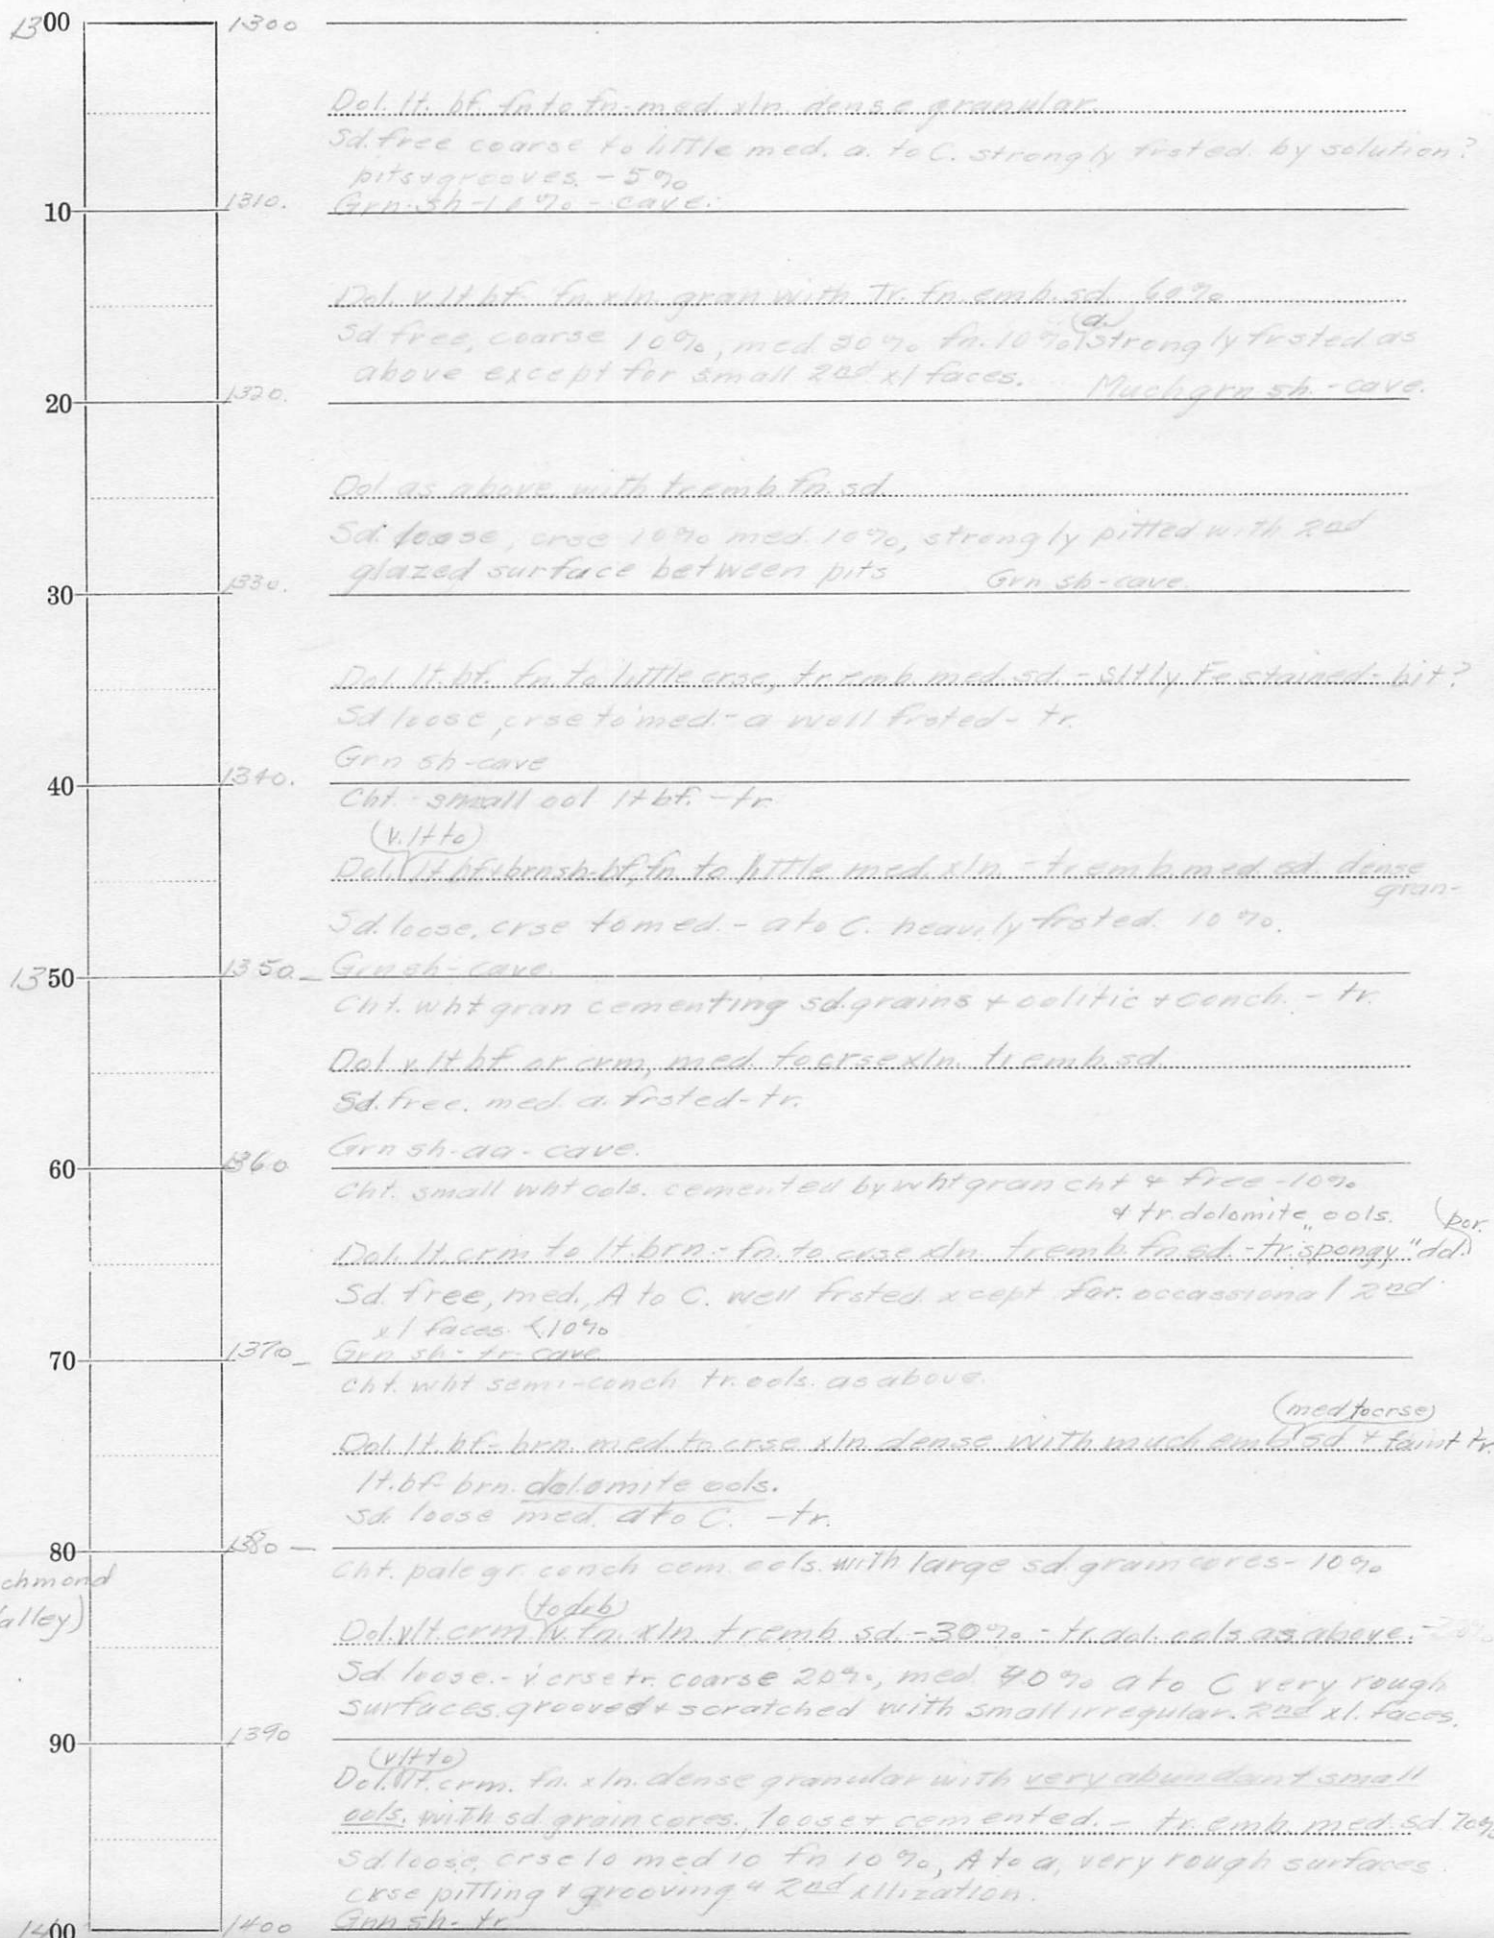 1300 1300
Dol. lt. bf. fn to fn-med. xln. dense granular
Sd. free coarse to little med. a. to C. strongly frsted. by solution?
pits & grooves. - 5%
10 1310. Grn. sh - 10% - cave.
Dol. v. lt bf. fn. xln. gran with Tr. fn. emb. sd. 60%
(a.)
Sd. free, coarse 10%, med 20% fn. 10% strongly frsted as
above except for small 2nd xl faces. Much grn sh. - cave.
20 1320.
Dol. as above with tr emb. fn. sd
Sd. loose, crse 10% med. 10%, strongly pitted with 2nd
glazed surface between pits Grn sh-cave.
30 1330.
Dol. lt. bf. fn. to little crse, tr. emb. med sd. - sltly Fe stained - bit?
Sd loose, crse to med. - a well frsted - tr.
Grn sh-cave
40 1340.
Cht. small ool lt bf. - tr.
(v. lt to)
Dol. lt bf + brnsh-bf, fn to little med. xln. - tr emb. med sd. dense
gran-
Sd. loose, crse to med. - a to C. heavily frsted. 10%.
1350 1350. Grn sh - cave.
Cht. wht gran cementing sd. grains + oolitic + conch. - tr.
Dol v. lt bf or crm, med. to crse xln. tr emb. sd.
Sd. free. med. a. frsted - tr.
Grn sh-aa-cave.
60 1360
Cht. small wht ools. cemented by wht gran cht & free - 10%
& tr. dolomite ools. (por.
Dol. lt. crm to lt. brn - fn. to crse xln. tr emb. fn. sd - tr. "spongy" dol.)
Sd. free, med., A to C. well frsted xcept for occassional 2nd
xl faces. <10%
70 1370 Grn sh - tr - cave
Cht. wht semi-conch tr. ools. as above.
(med to crse)
Dol. lt. bf - brn. med to crse xln dense with much emb sd + faint tr.
lt. bf - brn. dolomite ools.
Sd. loose med. a to C. - tr.
80 1380
chmond
alley)
Cht. pale gr. conch cem. ools. with large sd. grain cores - 10%
Dol. v lt. crm v. fn. xln. tr emb sd. - 30% - tr. dol. ools as above.
Sd loose. - v crse tr. coarse 20%, med 40% a to C very rough
surfaces. grooved & scratched with small irregular. 2nd xl. faces.
90 1390
(v lt to)
Dol. lt. crm. fn. xln. dense granular with very abundant small
ools. with sd. grain cores, loose + cemented. - tr. emb. med. sd. 70%
Sd loose, crse 10 med 10 fn 10%, A to a, very rough surfaces.
crse pitting & grooving & 2nd xllization.
1400 1400 Grn sh - tr.